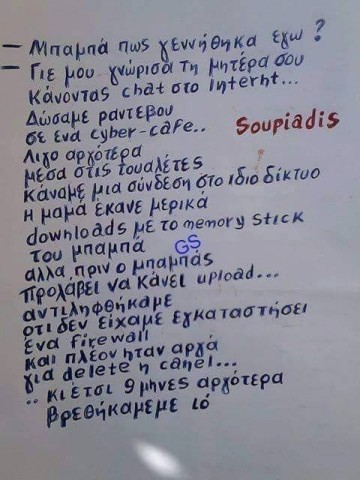 – Μπαμπά πως γεννήθηκα εγω ?
– Γιε μου γνώρισα τη μητέρα σου
κάνοντας chat στο Internt...
Δώσαμε ραντεβου
σε ενα cyber-cafe..
Soupiadis
Λιγο αργότερα
μέσα στις τουαλέτες
κάναμε μια σύνδεση στο ιδιο δίκτυο
η μαμά έκανε μερικά
downloads με το memory stick
του μπαμπά
GS
αλλα πριν ο μπαμπάς
προλάβει να κάνει upload...
αντιληφθήκαμε
οτι δεν είχαμε εγκαταστήσει
ένα firewall
και πλέον ηταν αργά
για delete η canel...
.. κι έτσι 9 μηνες αργότερα
βρεθήκαμεμε ιό